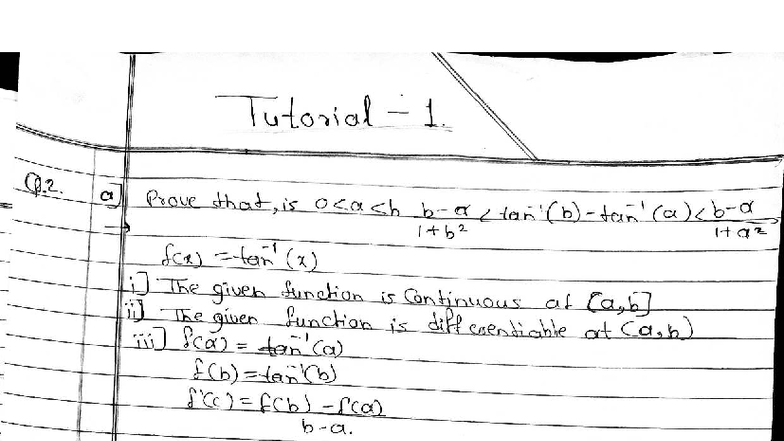 Tutorial - 1.
Q.2. a] Prove that, is 0<a<b b-a/1+b² < tan⁻¹(b)-tan⁻¹(a) < b-a/1+a²
→
f(x) = tan⁻¹(x)
i] The given function is Continuous at [a,b]
ii] The given function is differentiable at (a,b)
iii] f(a) = tan⁻¹(a)
f(b) = tan⁻¹(b)
f'(c) = f(b) - f(a)
b-a.